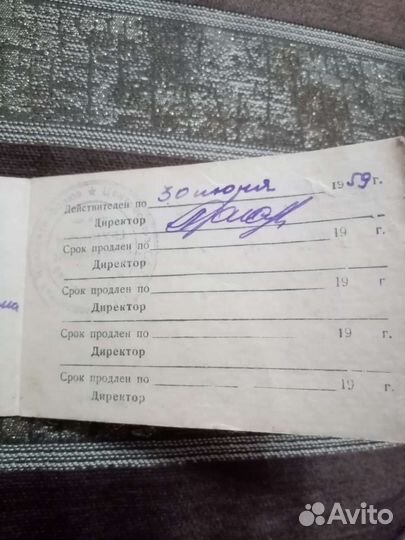 Действителен по 30 июня 1959 г.
Директор
Срок продлен по 19 г
Директор
Срок продлен по 19 г
Директор
Срок продлен по 19 г.
Директор
Срок продлен по 19 г.
Директор
Avito